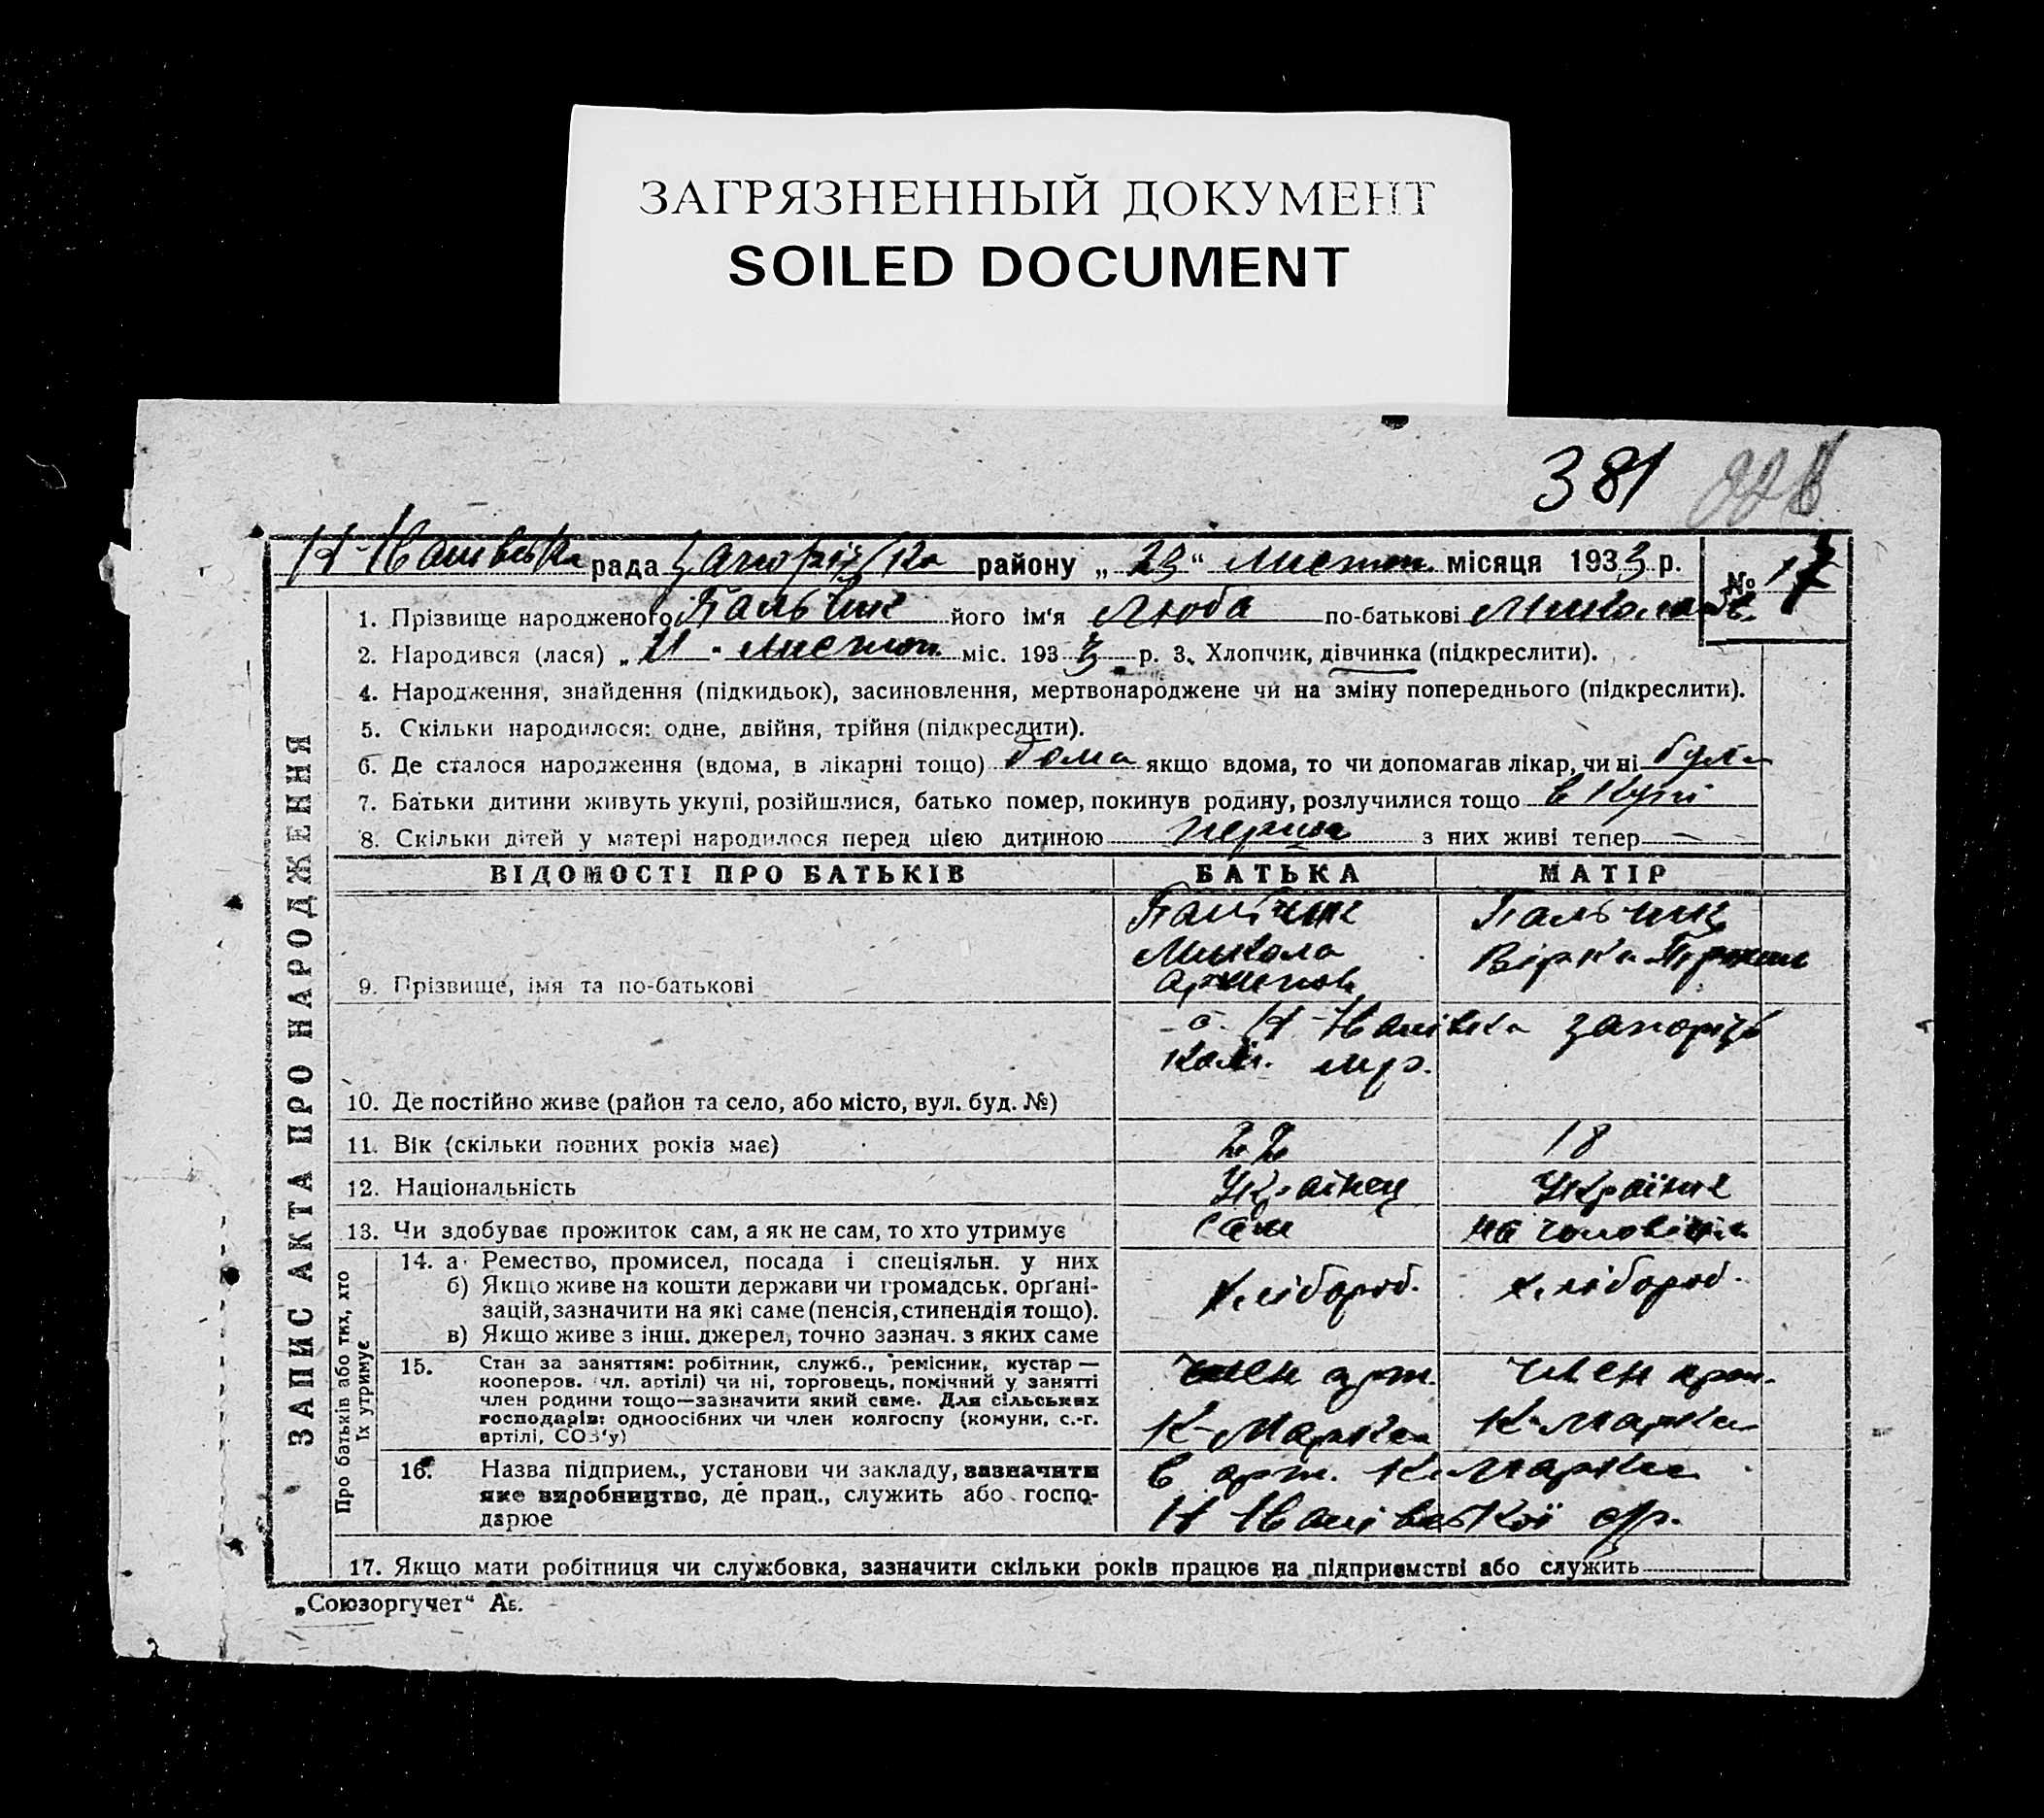 ЗАГРЯЗНЕННЫЙ ДОКУМЕНТ
SOILED DOCUMENT
381
рада району „ 23 “ листоп. місяця 1933 р. № 17
1. Прізвище народженого Пальчик його ім‘я Люба по-батькові
2. Народився (лася) „ листоп. міс. 1933 р. 3. Хлопчик, дівчинка (підкреслити).
4. Народження, знайдення (підкидьок), засиновлення, мертвонароджене чи на зміну попереднього (підкреслити).
5. Скільки народилося: одне, двійня, трійня (підкреслити).
6. Де сталося народження (вдома, в лікарні тощо) дома якщо вдома, то чи допомагав лікар, чи ні
7. Батьки дитини живуть укупі, розійшлися, батько помер, покинув родину, розлучилися тощо в купі
8. Скільки дітей у матері народилося перед цією дитиною перша з них живі тепер —
ВІДОМОСТІ ПРО БАТЬКІВ БАТЬКА МАТІР
Пальчик Пальчик
Микола Вірка
9. Прізвище, імя та по-батькові
с.
10. Де постійно живе (район та село, або місто, вул. буд. №)
11. Вік (скільки повних років має) 22 18
12. Національність Українец Українка
13. Чи здобуває прожиток сам, а як не сам, то хто утримує сам
14. а Ремество, промисел, посада і спеціяльн. у них
б) Якщо живе на кошти держави чи громадськ. органі-
зацій, зазначити на які саме (пенсія, стипендія тощо). хлібороб. хлібороб.
в) Якщо живе з інш. джерел, точно зазнач. з яких саме
15. Стан за заняттям: робітник, служб., ремісник, кустар — член арт. член арт.
кооперов. (чл. артілі) чи ні, торговець, помічний у занятті
член родини тощо—зазначити який саме. Для сільських
господарів: одноосібних чи член колгоспу (комуни, с.-г. К-Маркса К-Маркса
артілі, СОЗ‘у)
16. Назва підприєм., установи чи закладу, зазначити в арт. К-Маркса
яке виробництво, де прац., служить або госпо-
дарює
17. Якщо мати робітниця чи службовка, зазначити скільки років працює на підприємстві або служить
ЗАПИС АКТА ПРО НАРОДЖЕННЯ
Про батьків або тих, хто
їх утримує
„Союзоргучет“ Ав.